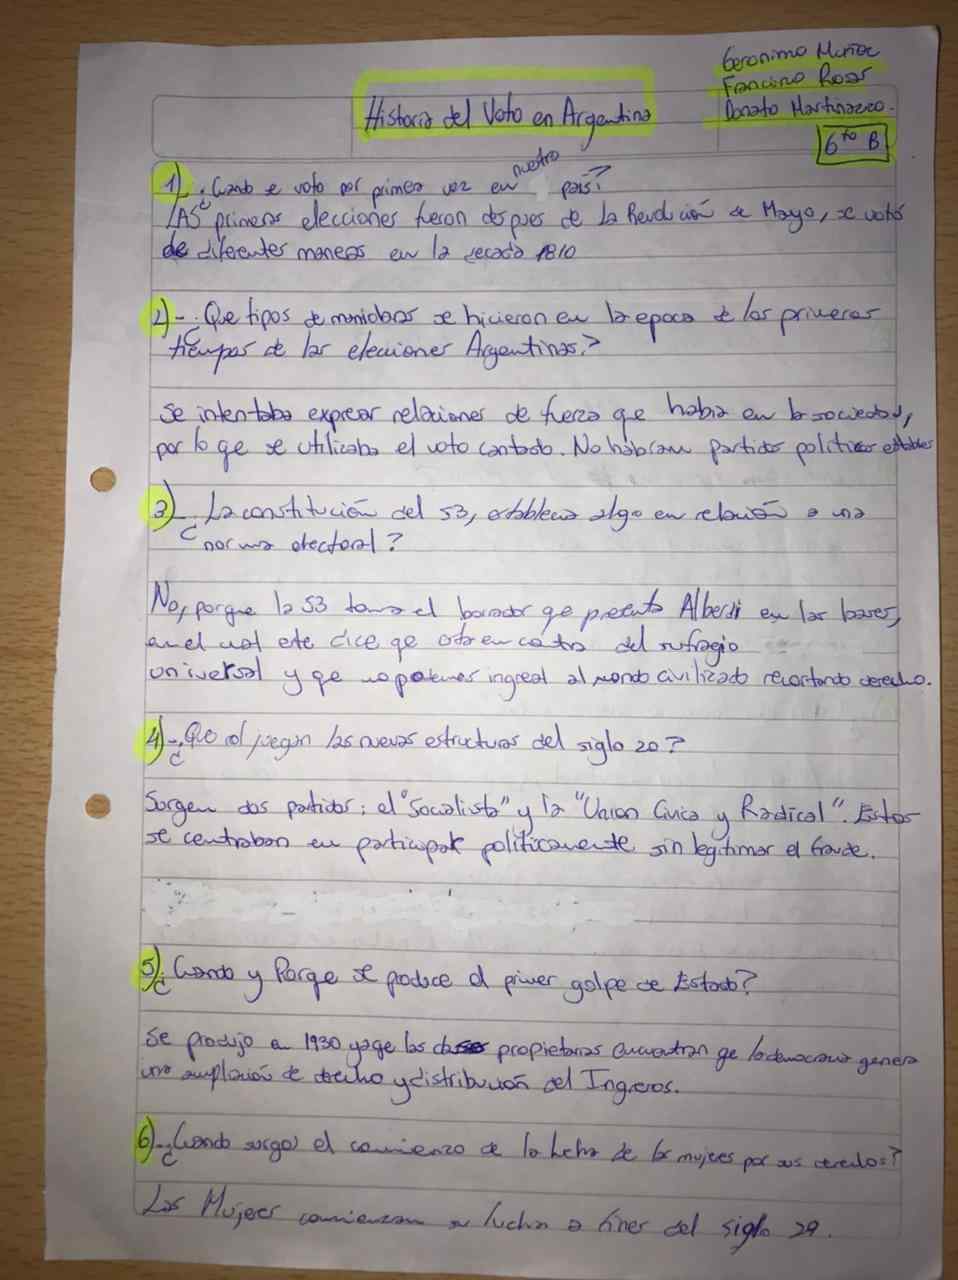 Geronimo Muñoz
Francisco Rosas
Donato Martinazzo.
6to B
Historia del Voto en Argentina
1)_ ¿Cuando se voto por primera vez en nuestro pais?
LAS primeras elecciones fueron despues de la Revolución de Mayo, se votó
de diferentes maneras en la decada 1810
2)-¿Que tipos de maniobras se hicieron en la epoca de los primeros
tiempos de las elecciones Argentinas?
Se intentaba expresar relaciones de fuerza que habia en la sociedad,
por lo qe se utilizaba el voto cantado. No habian partidos politicos estables
3)_ ¿La constitución del 53, establecia algo en relación a una
norma electoral?
No, porque la 53 toma el borrador qe presenta Alberdi en las bases,
en el cual este dice qe esta en contra del sufragio
universal y qe no podemos ingresar al mundo civilizado recortando derecho.
4)-¿Que rol juegan las nuevas estructuras del siglo 20?
Surgen dos partidos: el "Socialista" y la "Union Civica y Radical". Estos
se centraban en participar politicamente sin legitimar el fraude.
5)¿Cuando y Porqe se produce el primer golpe de Estado?
Se produjo en 1930 ya qe las clases propietarias encuentran qe la democracia genera
una ampliación de derecho y distribución del Ingresos.
6)-¿Cuando surge el comienzo de la lucha de las mujeres por sus derechos?
Las Mujeres comienzan su lucha a fines del siglo